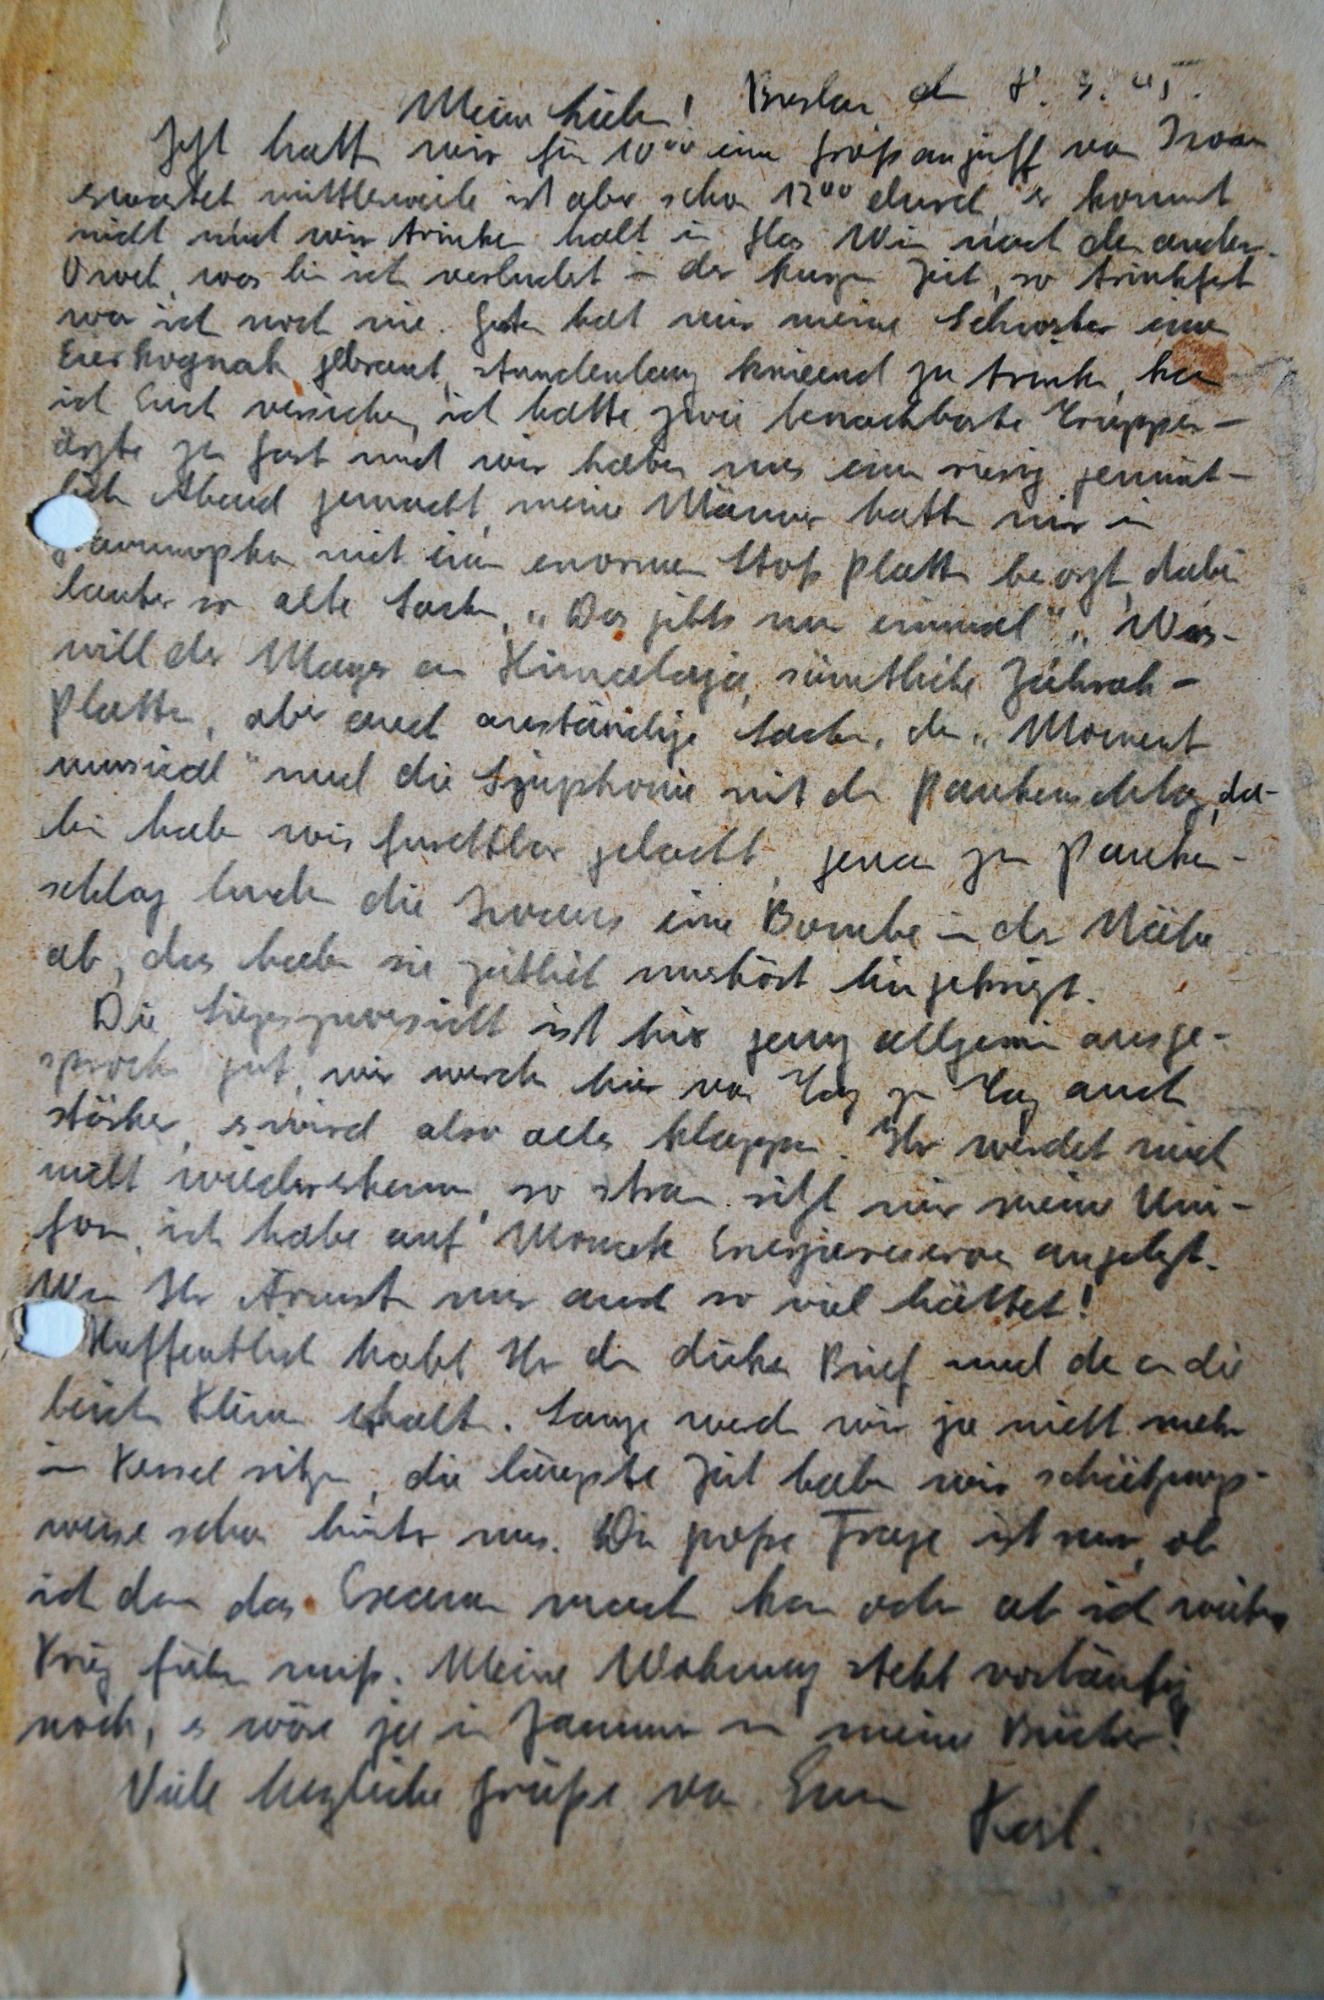 Meine Lieben! Breslau den 8. 3. 45.
Jetzt hatten wir für 10°° einen Großangriff von Iwan
erwartet mittlerweile ist aber schon 12°° durch, er kommt
nicht und wir trinken halt ein Glas Wein nach dem andern.
O weh, was bin ich verludert in der kurzen Zeit, so trinkfest
war ich noch nie. Gestern hat mir meine Schwester einen
Eierkognak gebraut, stundenlang knieend zu trinken, kann
ich Euch versichern, ich hatte zwei benachbarte Truppen-
ärzte zu Gast und wir haben uns einen riesig gemüt-
lichen Abend gemacht, meine Männer hatten mir ein
Grammophon mit einem enormen Stoß Platten besorgt, dabei
lauter so alte Sachen, „Das gibts nur einmal", „Was
will der Mayer am Himalaja, sämtliche Jahrah-
Platten, aber auch anständige Sachen, den „Moment
musical" und die Symphonie mit dem Paukenschlag, da-
bei haben wir furchtbar gelacht, genau zum Pauken-
schlag luden die Iwans eine Bombe in der Nähe
ab, das haben sie zeitlich unerhört hingekriegt.
Die Siegeszuversicht ist hier ganz allgemein ausge-
sprochen gut, wir werden hier von Tag zu Tag auch
stärker, es wird also alles klappen. Ihr werdet mich
nicht wiedererkennen, so stramm sitzt mir meine Uni-
form, ich habe auf Monate Energiereserven angelegt.
Wenn Ihr Ärmsten nur auch so viel hättet!
Hoffentlich habt Ihr den dicken Brief und den an die
beiden Kleinen erhalten. Lange werden wir ja nicht mehr
im Kessel sitzen, die längste Zeit haben wir schätzungs-
weise schon hinter uns. Die große Frage ist nur, ob
ich dann das Examen machen kann oder ob ich weiter
Krieg führen muß. Meine Wohnung steht vorläufig
noch, es wäre ja ein Jammer um meine Bücher!
Viele herzliche Grüße von Euerm Karl.